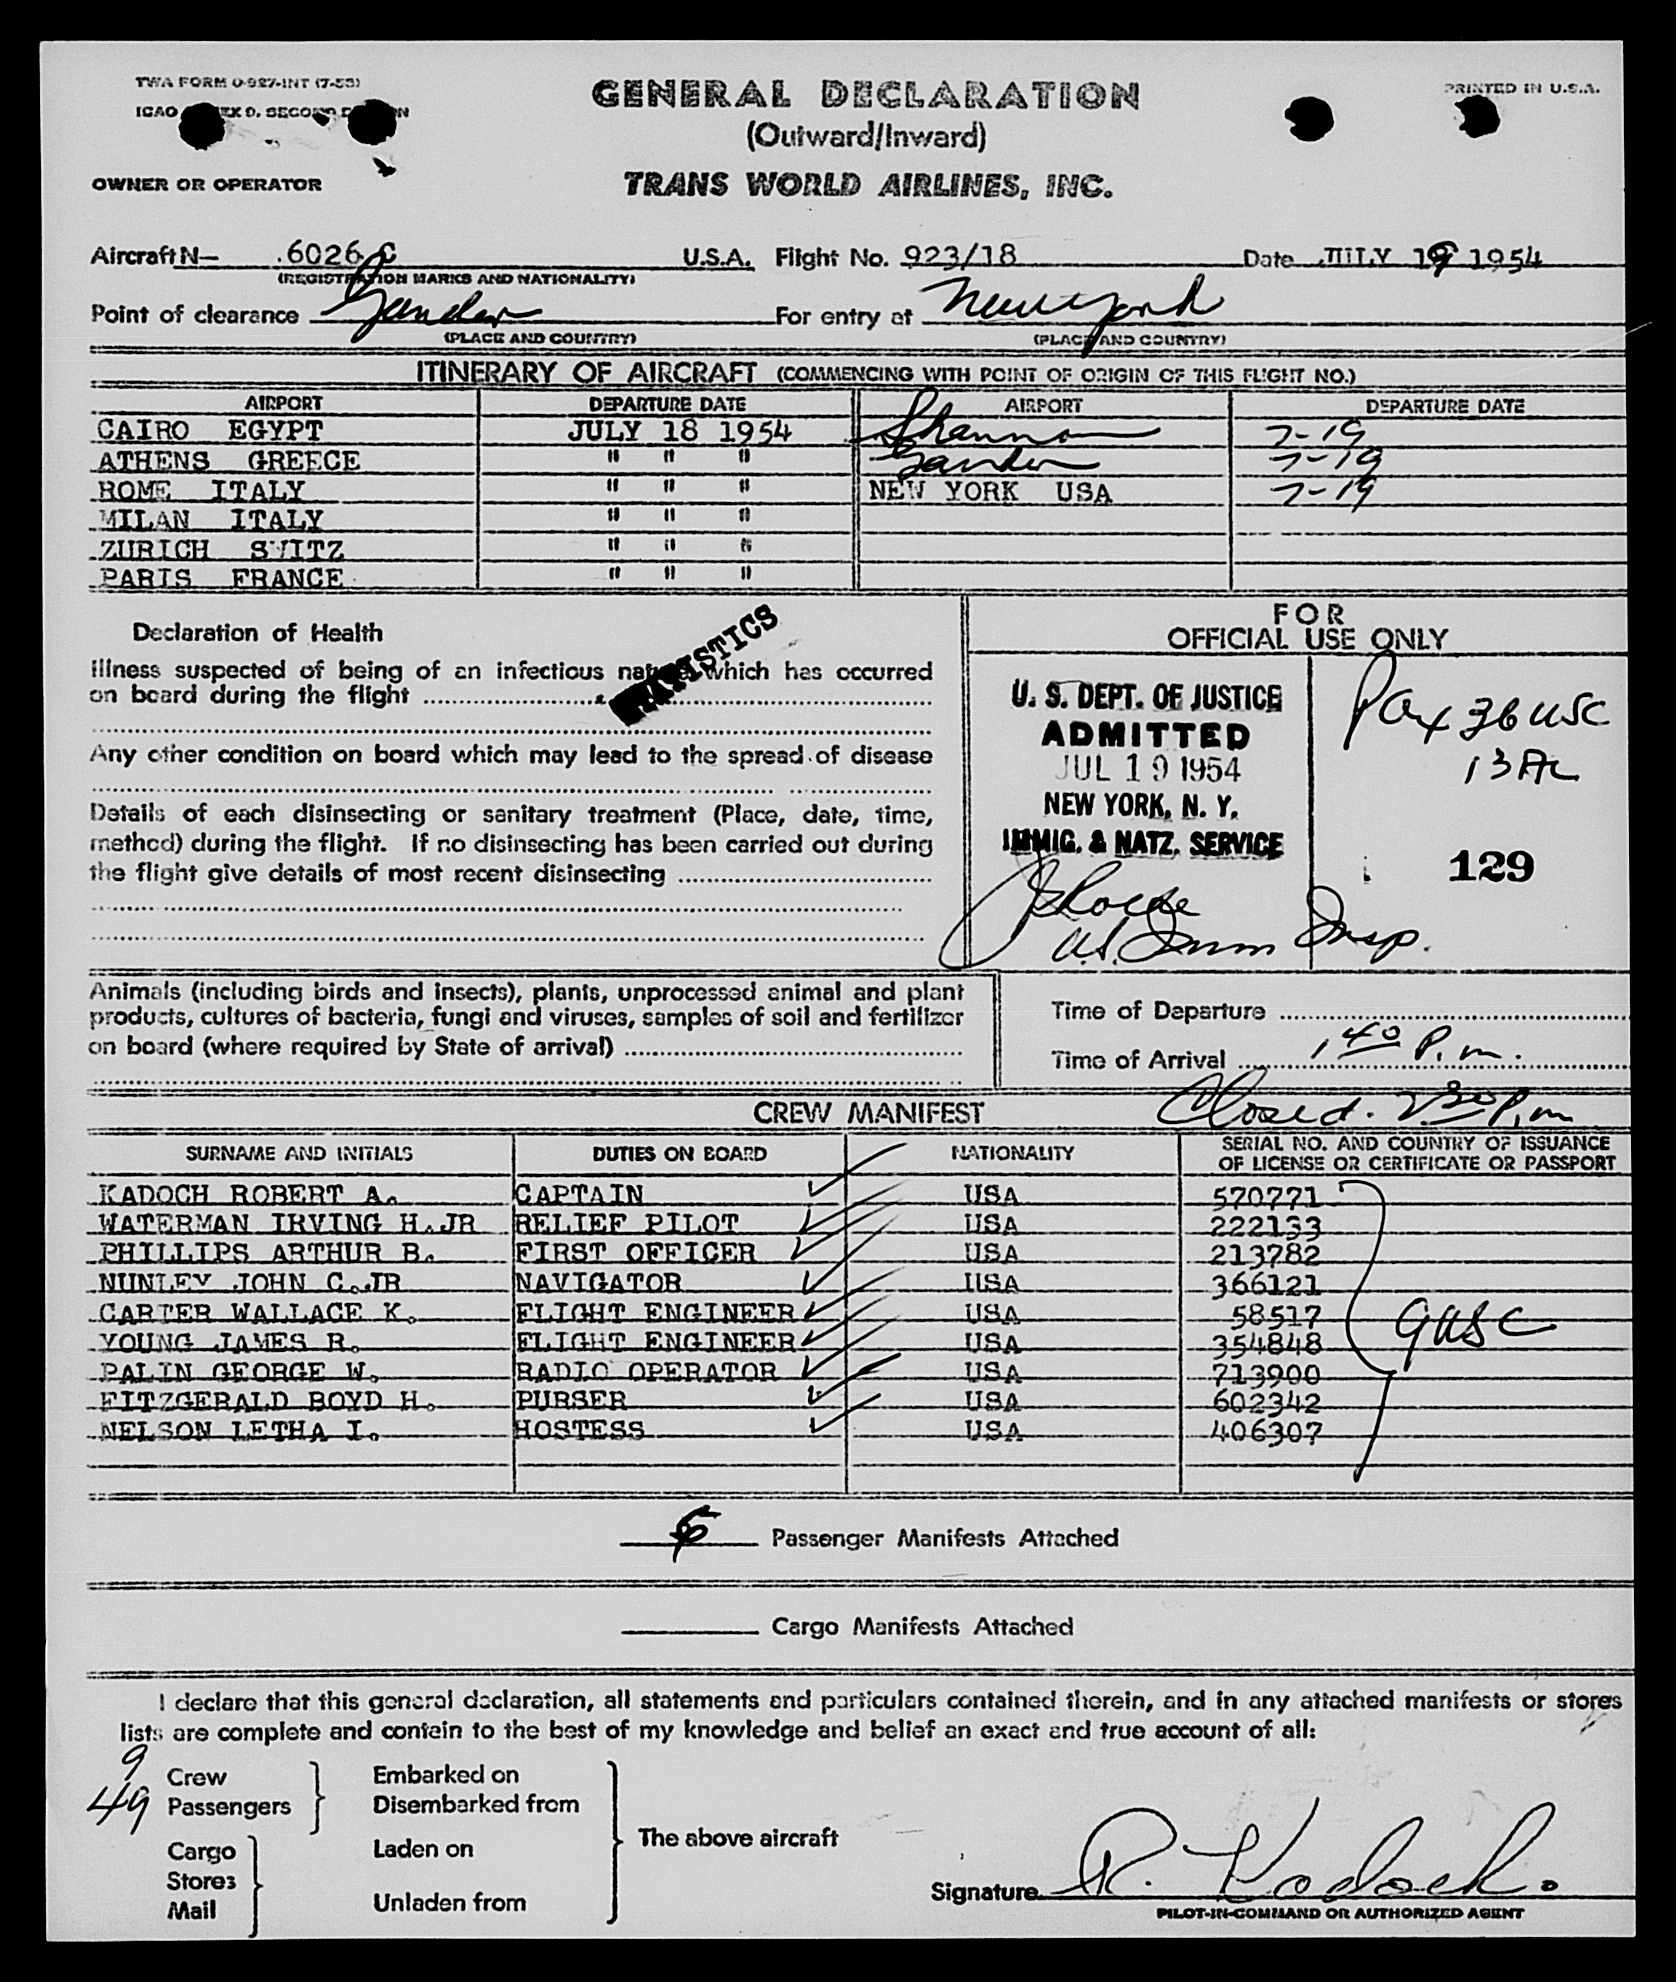 TWA FORM O-927-INT (7-53)
PRINTED IN U.S.A.
GENERAL DECLARATION
(Outward/Inward)
OWNER OR OPERATOR
TRANS WORLD AIRLINES, INC.
Aircraft N— 6026 C U.S.A. Flight No. 923/18 Date JULY 19 1954
(REGISTRATION MARKS AND NATIONALITY)
Point of clearance Gander For entry at New York
(PLACE AND COUNTRY) (PLACE AND COUNTRY)
ITINERARY OF AIRCRAFT (COMMENCING WITH POINT OF ORIGIN OF THIS FLIGHT NO.)
AIRPORT DEPARTURE DATE AIRPORT DEPARTURE DATE
CAIRO EGYPT JULY 18 1954 Shannon 7-19
ATHENS GREECE " " " Gander 7-19
ROME ITALY " " " NEW YORK USA 7-19
MILAN ITALY " " "
ZURICH SWITZ " " "
PARIS FRANCE " " "
STATISTICS
Declaration of Health
Illness suspected of being of an infectious nature which has occurred
on board during the flight
Any other condition on board which may lead to the spread of disease
Details of each disinsecting or sanitary treatment (Place, date, time,
method) during the flight. If no disinsecting has been carried out during
the flight give details of most recent disinsecting
FOR
OFFICIAL USE ONLY
U. S. DEPT. OF JUSTICE
ADMITTED
JUL 19 1954
NEW YORK, N. Y.
IMMIG. & NATZ. SERVICE
U.S. Imm Insp.
Pax 36 USC
13 AL
129
Animals (including birds and insects), plants, unprocessed animal and plant
products, cultures of bacteria, fungi and viruses, samples of soil and fertilizer
on board (where required by State of arrival)
Time of Departure
Time of Arrival 1 40 P.m.
Closed. 2 30 P.m
CREW MANIFEST
SURNAME AND INITIALS DUTIES ON BOARD NATIONALITY SERIAL NO. AND COUNTRY OF ISSUANCE
OF LICENSE OR CERTIFICATE OR PASSPORT
KADOCH ROBERT A. CAPTAIN USA 570771
WATERMAN IRVING H.JR RELIEF PILOT USA 222133
PHILLIPS ARTHUR B. FIRST OFFICER USA 213782
NUNLEY JOHN C.JR NAVIGATOR USA 366121
CARTER WALLACE K. FLIGHT ENGINEER USA 58517
YOUNG JAMES R. FLIGHT ENGINEER USA 354848
PALIN GEORGE W. RADIO OPERATOR USA 713900
FITZGERALD BOYD H. PURSER USA 602342
NELSON LETHA I. HOSTESS USA 406307
9 USC
Passenger Manifests Attached
Cargo Manifests Attached
I declare that this general declaration, all statements and particulars contained therein, and in any attached manifests or stores
lists are complete and contain to the best of my knowledge and belief an exact and true account of all:
9 Crew Embarked on
49 Passengers Disembarked from
The above aircraft
Cargo Laden on
Stores
Mail Unladen from
Signature R. Kadoch.
PILOT-IN-COMMAND OR AUTHORIZED AGENT